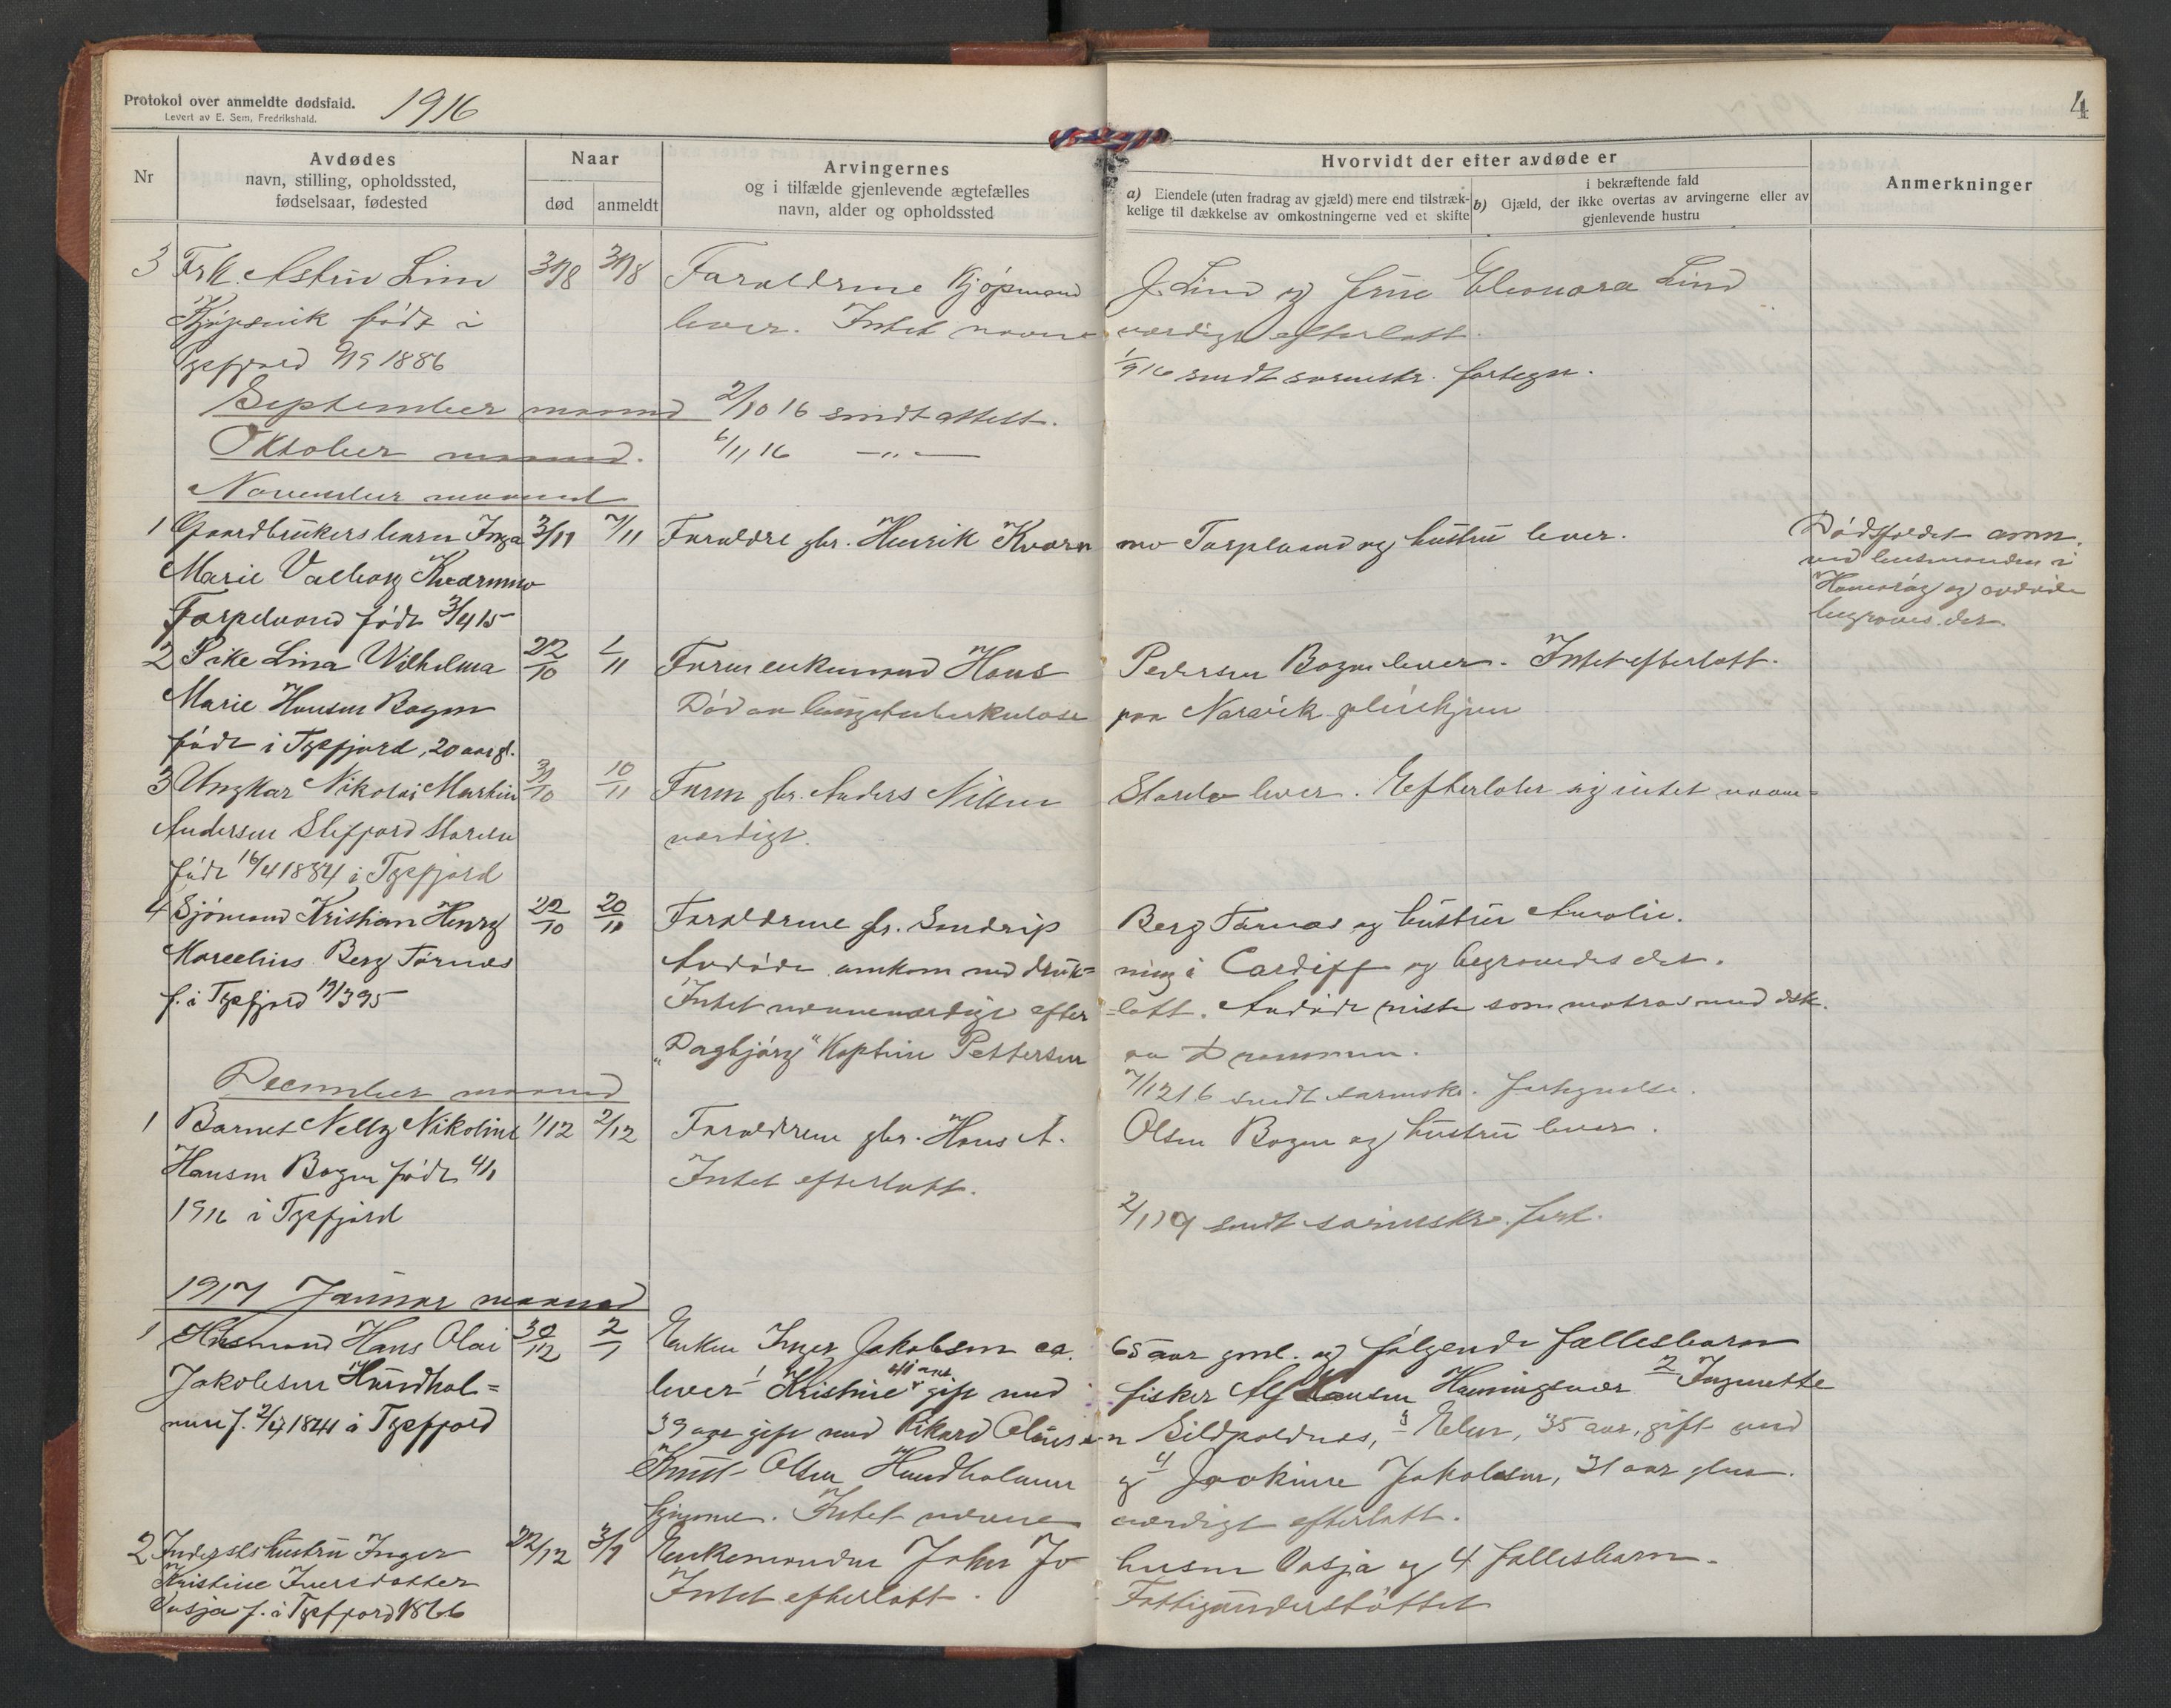 Protokol over anmeldte dødsfald.
Levert av E. Sem, Fredrikshald.
1916
4
Nr
Avdødes
navn, stilling, opholdssted,
fødselsaar, fødested
Naar
død anmeldt
Arvingernes
og i tilfælde gjenlevende ægtefælles
navn, alder og opholdssted
Hvorvidt der efter avdøde er
a) Eiendele (uten fradrag av gjæld) mere end tilstræk-
kelige til dækkelse av omkostningerne ved et skifte
i bekræftende fald
b) Gjæld, der ikke overtas av arvingerne eller av
gjenlevende hustru
Anmerkninger
3 Frk. Astrid Lind 31/8 31/8 Forældrene Kjøpmand J. Lind og frue Eleonora Lind
Kjøpsvik født i lever. Intet nævne værdigt efterlatt.
Tysfjord 1886
1/9 16 sendt sorenskr. fortegn.
September maaned 2/10 16 sendt attest.
Oktober maaned. 6/11 16 —„—
November maaned
1 Gaardbrukersbarn Inga 3/11 7/11 Forældre gbr. Henrik Kvarn mo Tarpelvand og hustru lever.
Marie Valborg Kvarnmo
Tarpelvand født 3/4 15
Dødsfaldet anm.
ved lensmanden i
Hamarøy og avdøde
begraves der
2 Pike Lina Wilhelma 22/10 /11 Faren enkemand Hans Pedersen Bogen lever. Intet efterlatt.
Marie Hansen Bogen Død av lungetuberkulose paa Narvik pleiehjem
født i Tysfjord, 20 aar gl.
3 Ungkar Nikolai Martin 31/10 10/11 Faren gbr. Anders Nilsen Storelv lever. Efterlater sig intet nævne=
Andersen Stefjord Storelv værdigt.
født 16/4 1884 i Tysfjord
4 Sjømand Kristian Henry 22/10 20/11 Forældrene gbr. Sendrip Berg Tårnes og hustru Amalie.
Marcelius Berg Tårnes Avdøde omkom ved druk= ning i Cardiff og begravedes der.
f. i Tysfjord 19/3 95 Intet nævneværdigt efter =latt. Avdøde reiste som matros med dsk.
„Dagbjørg" Kaptein Pettersen av Drammen.
7/12 16 sendt sorenskr. fortegnelse.
December maaned
1 Barnet Nelly Nikoline 1/12 2/12 Forældrene gbr. Hans A. Olsen Bogen og hustru lever.
Hansen Bogen født 4/1 Intet efterlatt.
1916 i Tysfjord
2/1 19 sendt sorenskr. fort.
1917 Januar maaned
1 Husmand Hans Olai 30/12 2/1 Enken Inger Jakobsen ca. 65 aar gml. og følgende fællesbarn
Jakobsen Hundhol= lever 1 Kristine 41 aar gift med fisker Alf Hansen Henningsvær 2 Ingunette
men f. 2/4 1841 i Tysfjord 39 aar gift med Rikard Olausen Sildpoldnes, 3 Elen, 35 aar, gift med
Knut Olsen Hundholmen og 4 Joakime Jakobsen, 31 aar
hjemme. Intet nævne værdigt efterlatt.
2 Inderstshustru Inger 22/12 3/1 Enkemanden John Jo hnsen Vasja og 4 fællesbarn.
Kristine Iversdatter Intet efterlatt. Fattigunderstøttet
Vasja f. i Tysfjord 1866